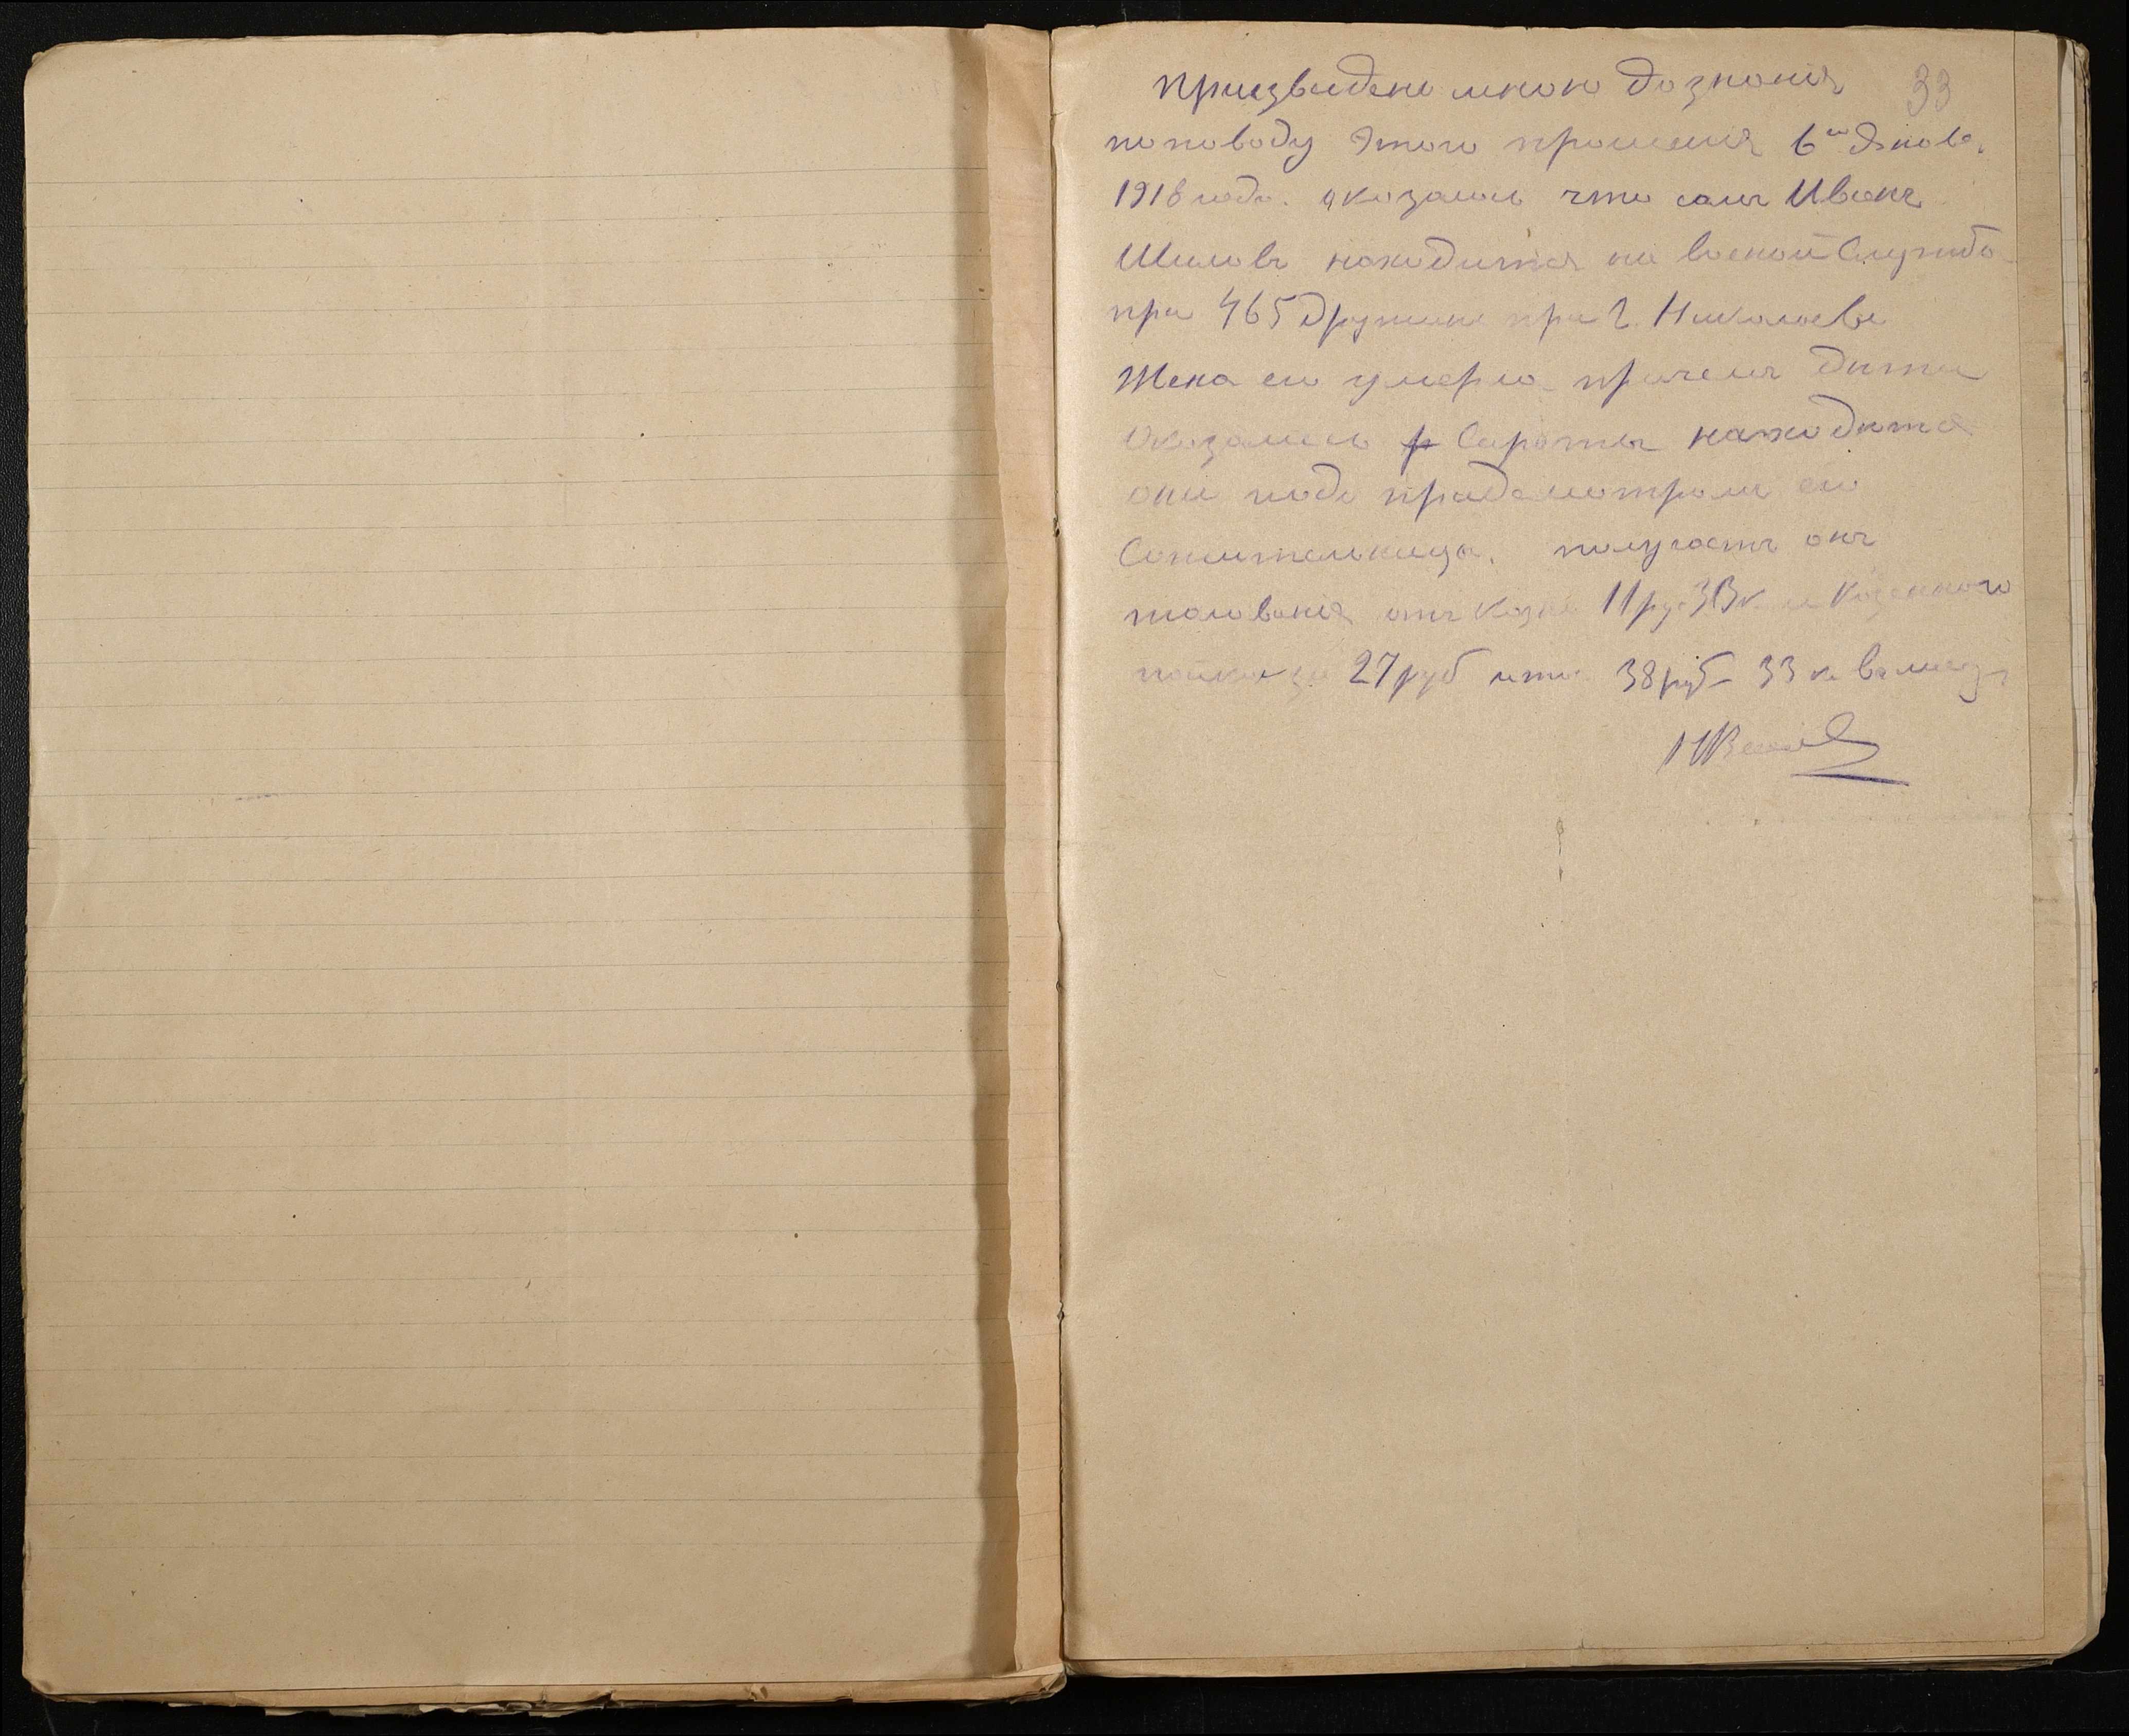 33
Приизведено мною дознания
поповоду этого прошения 6го Января
1918 года. аказалось что самъ Иванъ
Шиловъ находится на военой Службѣ
при 465 Дружине при г. Николаеве
Жена его умерла причемъ дити
Оказались Сироты находитса
они подъ придсмотромъ его
Сожительница. получаетъ онъ
жалования отъ казне 11 ру 33 к. и Казеннаго
пайка за 27 руб итого 38 руб 33 к. въ месяц